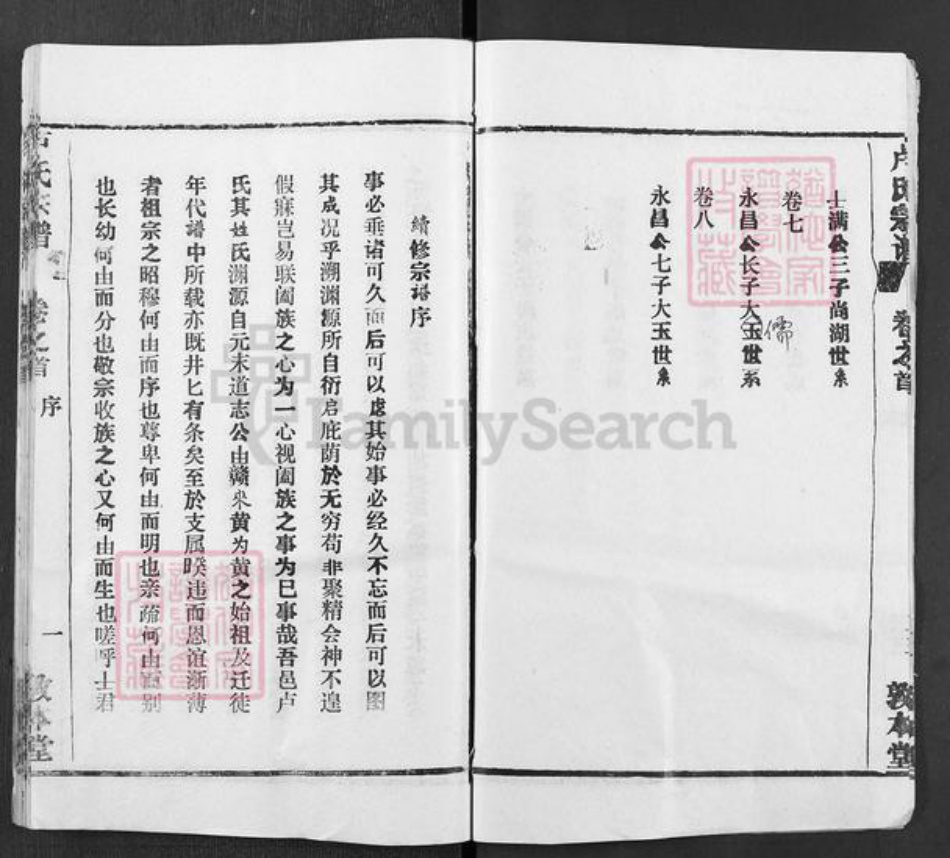 卢氏宗谱
卷之首
敦本堂
士满公三子尚湖世系
卷七
永昌公长子大玉世系
儒
卷八
永昌公七子大玉世系
續修宗谱序
事必垂诸可久而后可以虑其始事必经久不忘而后可以图
其成况乎溯渊源所自衍启庇荫於无穷苟非聚精会神不遑
假寐岂易联阖族之心为一心视阖族之事为巳事哉吾邑卢
氏其姓氏渊源自元末道志公由赣来黄为黄之始祖及迁徒
年代谱中所载亦既井匕有条矣至於支属暌违而恩谊渐薄
者祖宗之昭穆何由而序也尊卑何由而明也亲疏何由而别
也长幼何由而分也敬宗收族之心又何由而生也嗟呼士君
氏宗谱
卷之首
序
一
敦本堂
FamilySearch